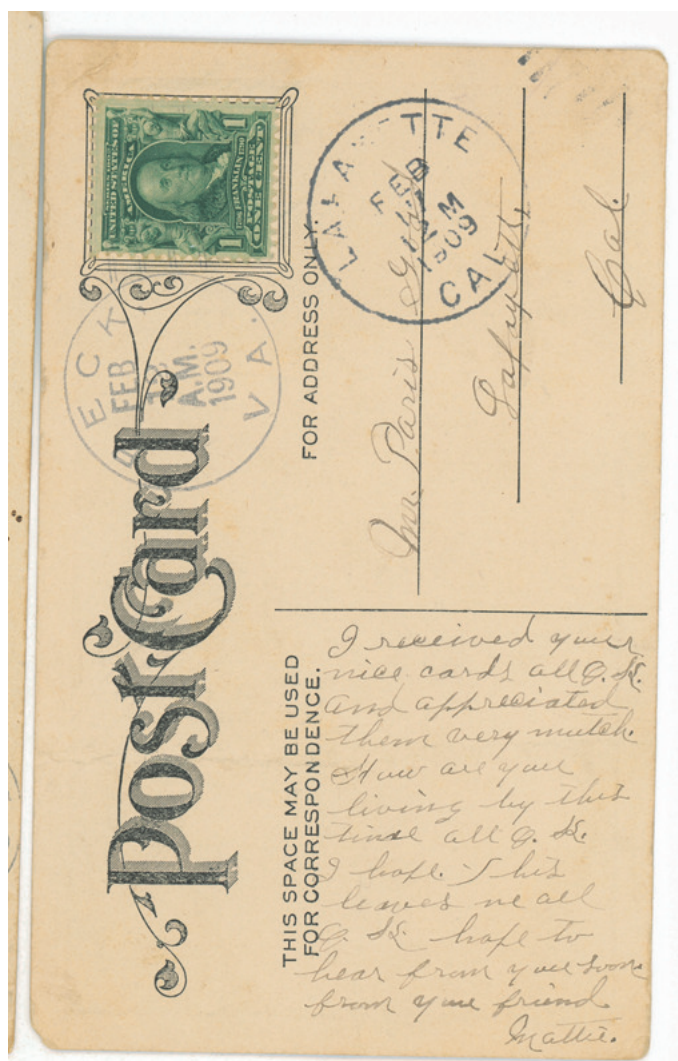 Post Card
THIS SPACE MAY BE USED
FOR CORRESPONDENCE.
FOR ADDRESS ONLY.
UNITED STATES OF
AMERICA
1706 FRANKLIN 1790
POSTAGE
ONE CENT
1
1
FEB
A.M.
1909
VA.
LAFAYETTE
FEB
M
1909
CAL
Mr. Paris
Lafayette
Cal.
I received your
nice cards all O.K.
and appreciated
them very mutch.
How are you
living by this
time all O.K.
I hope. This
leaves me all
O.K. hope to
hear from you soon
from your friend.
Mattie.